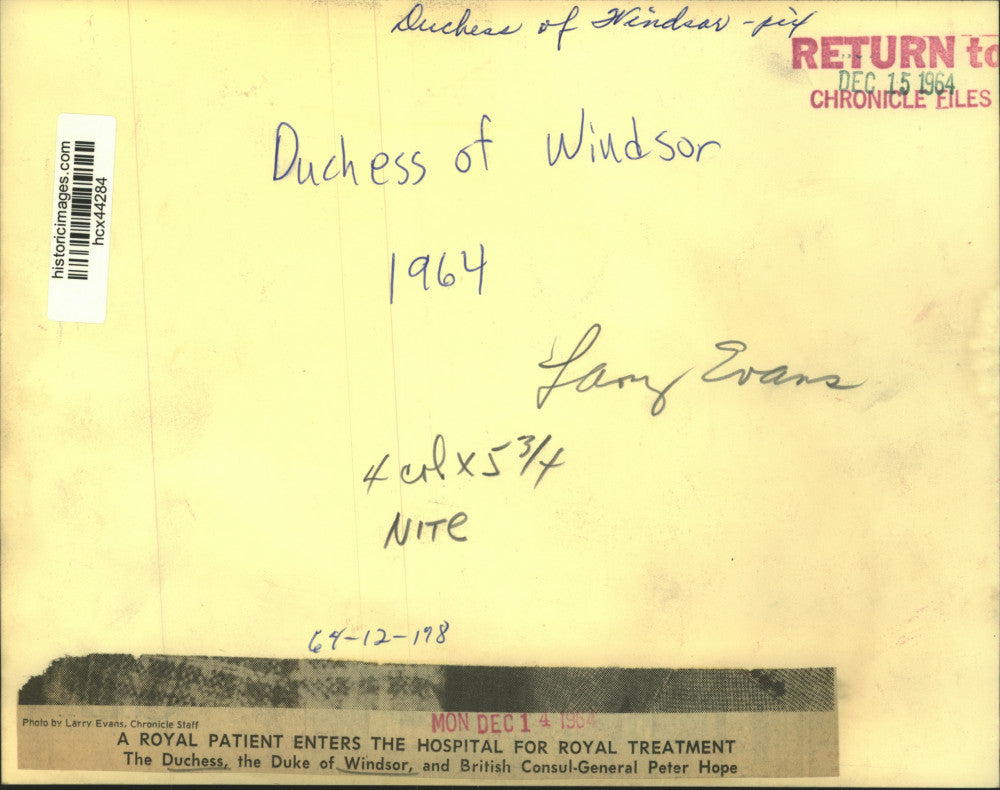 Duchess of Windsor - pix
RETURN to
DEC 15 1964
CHRONICLE FILES
historicimages.com
hcx44284
Duchess of Windsor
1964
Larry Evans
4 col x 5 3/4
NITE
64-12-178
Photo by Larry Evans, Chronicle Staff
MON DEC 14 1964
A ROYAL PATIENT ENTERS THE HOSPITAL FOR ROYAL TREATMENT
The Duchess, the Duke of Windsor, and British Consul-General Peter Hope